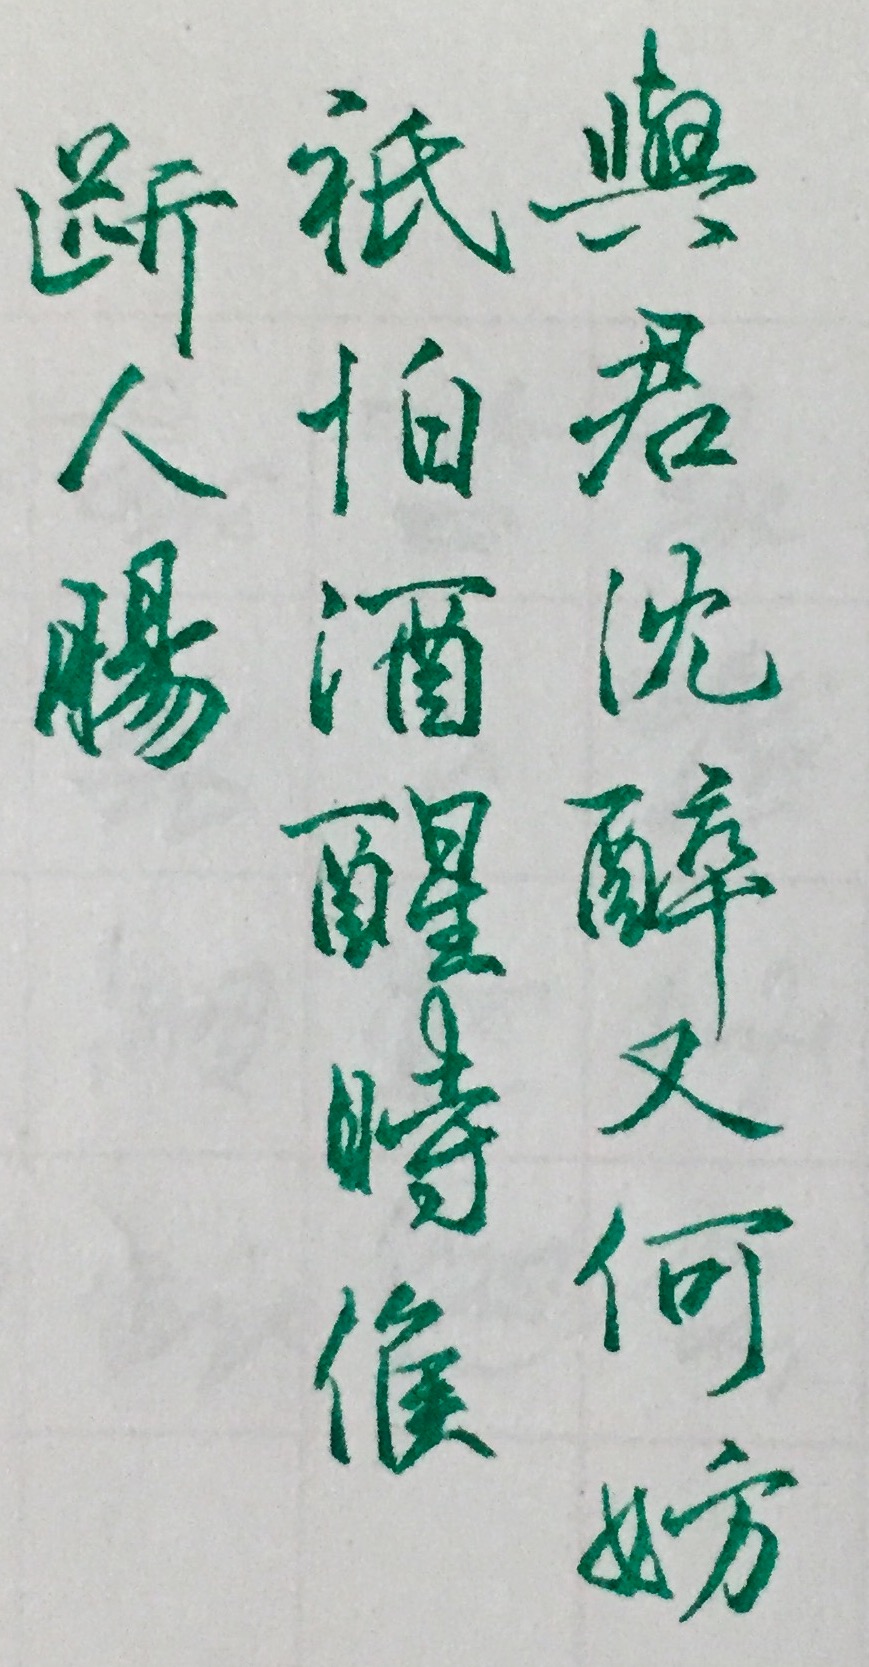 與君沈醉又何妨
祇怕酒醒時候
斷人腸